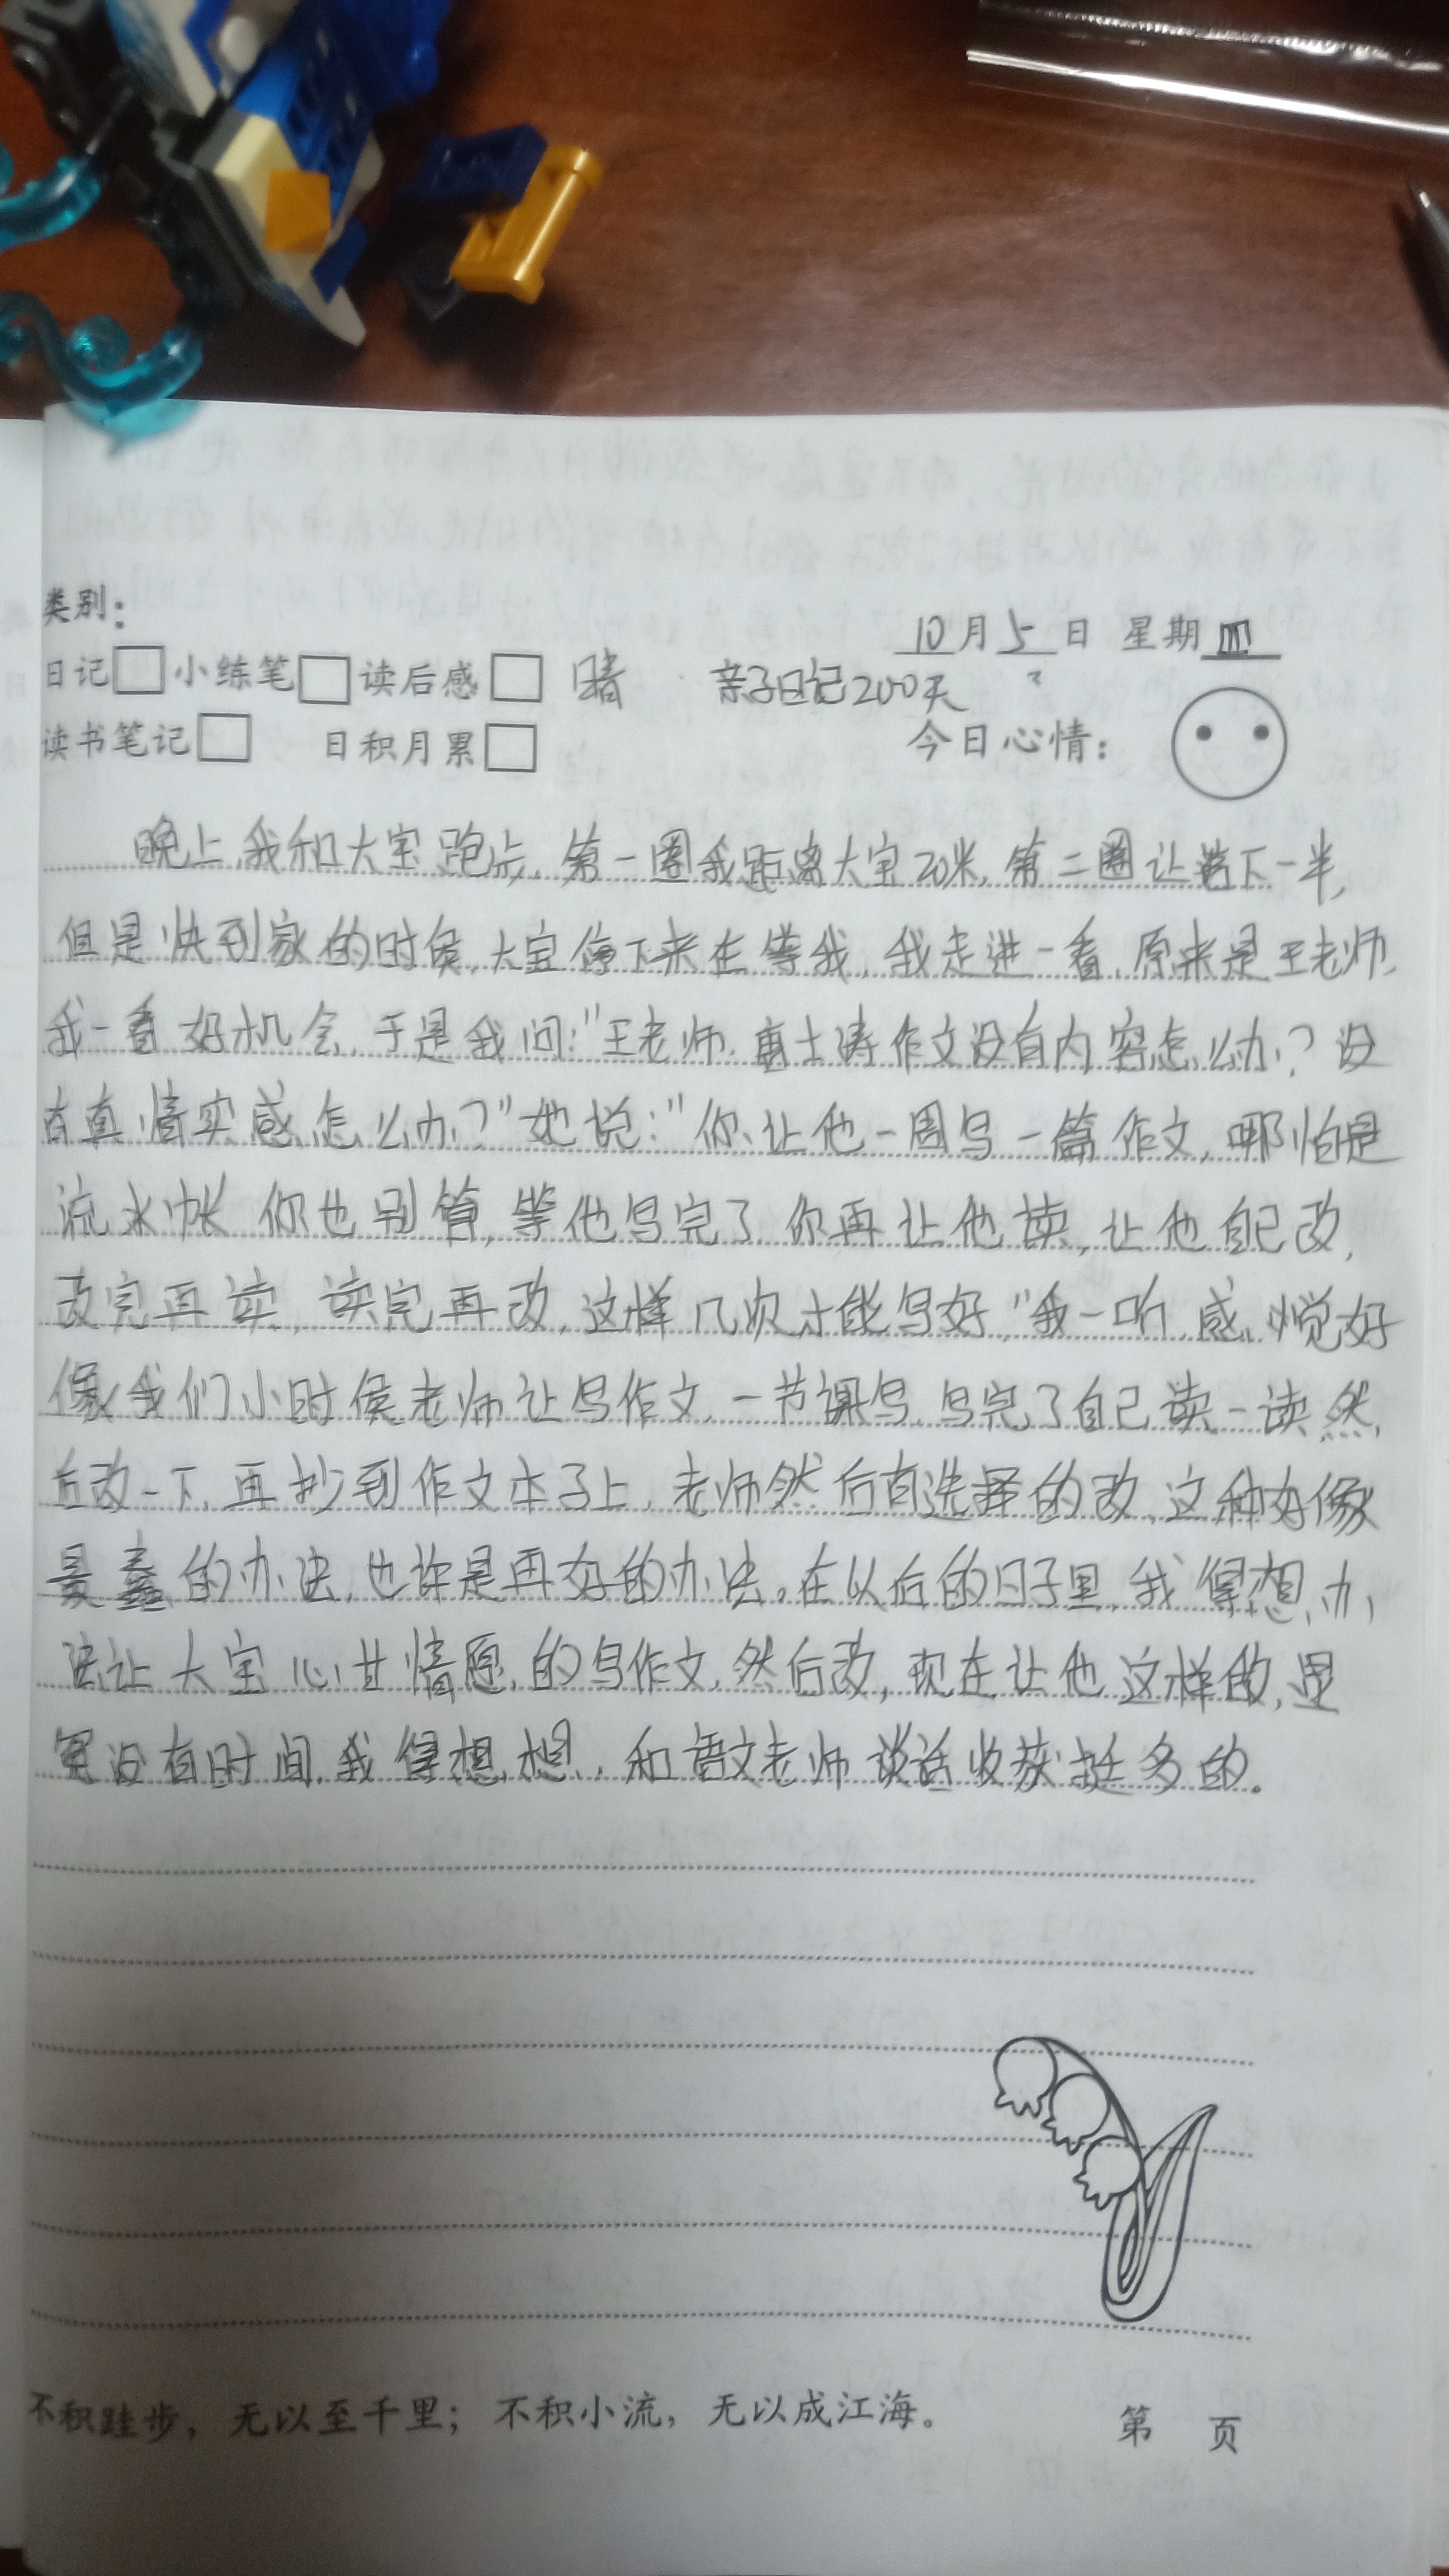 类别：
10月5日 星期四
日记 小练笔 读后感 晴 亲子日记200天
读书笔记 日积月累 今日心情：
晚上,我和大宝跑步,第一圈我距离大宝20米,第二圈让落下一半,
但是快到家的时候,大宝停下来在等我,我走进一看,原来是王老师,
我一看好机会,于是我问:"王老师,唐士涛作文没有内容怎么办?没
有真情实感怎么办?"她说:"你让他一周写一篇作文,哪怕是
流水帐 你也别管,等他写完了,你再让他读,让他自己改,
改完再读,读完再改,这样几次才能写好,"我一听,感觉好
像我们小时候老师让写作文,一节课写,写完了自己读一读,然
后改一下,再抄到作文本子上,老师然后有选择的改,这种好像
最蠢的办法,也许是再好的办法。在以后的日子里,我得想办
法让大宝心甘情愿的写作文,然后改,现在让他这样做,是
没有时间,我得想想,和语文老师谈话收获挺多的。
不积跬步，无以至千里；不积小流，无以成江海。 第 页